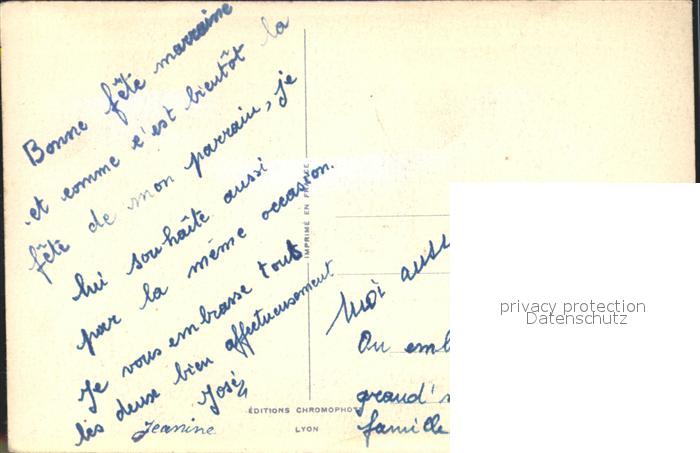 Bonne fête marraine
et comme c'est bientôt la
fête de mon parrain, je
lui souhaite aussi
par la même occasion.
Je vous embrasse tout
les deux bien affectueusement
José
Jeanine
IMPRIMÉ EN FRANCE
ÉDITIONS CHROMOPHOT
LYON
Moi auss
On emb
grand'
famille
privacy protection
Datenschutz